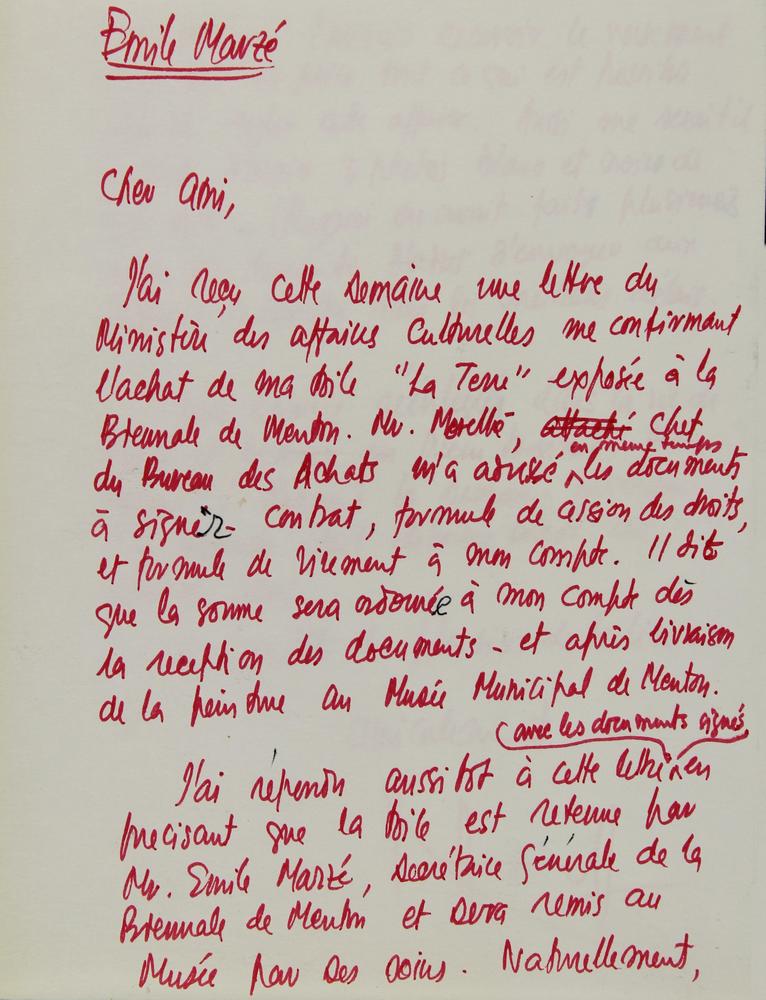 Emile Marzé
Cher Ami,
J'ai reçu cette semaine une lettre du
Ministère des affaires Culturelles me confirmant
l'achat de ma toile "La Terre" exposée à la
Biennale de Menton. Mr. Morellé, attaché Chef
en même temps
du Bureau des Achats m'a adressé les documents
à signer - contrat, formule de cession des droits,
et formule de virement à mon compte. Il dit
que la somme sera ordonnée à mon compte dès
la reception des documents - et après livraison
de la peinture au Musée Municipal de Menton.
(avec les documents signés)
J'ai répondu aussitot à cette lettre en
precisant que la toile est retenue par
Mr. Emile Marzé, Secrétaire Générale de la
Biennale de Menton et sera remis au
Musée par ses soins. Naturellement,